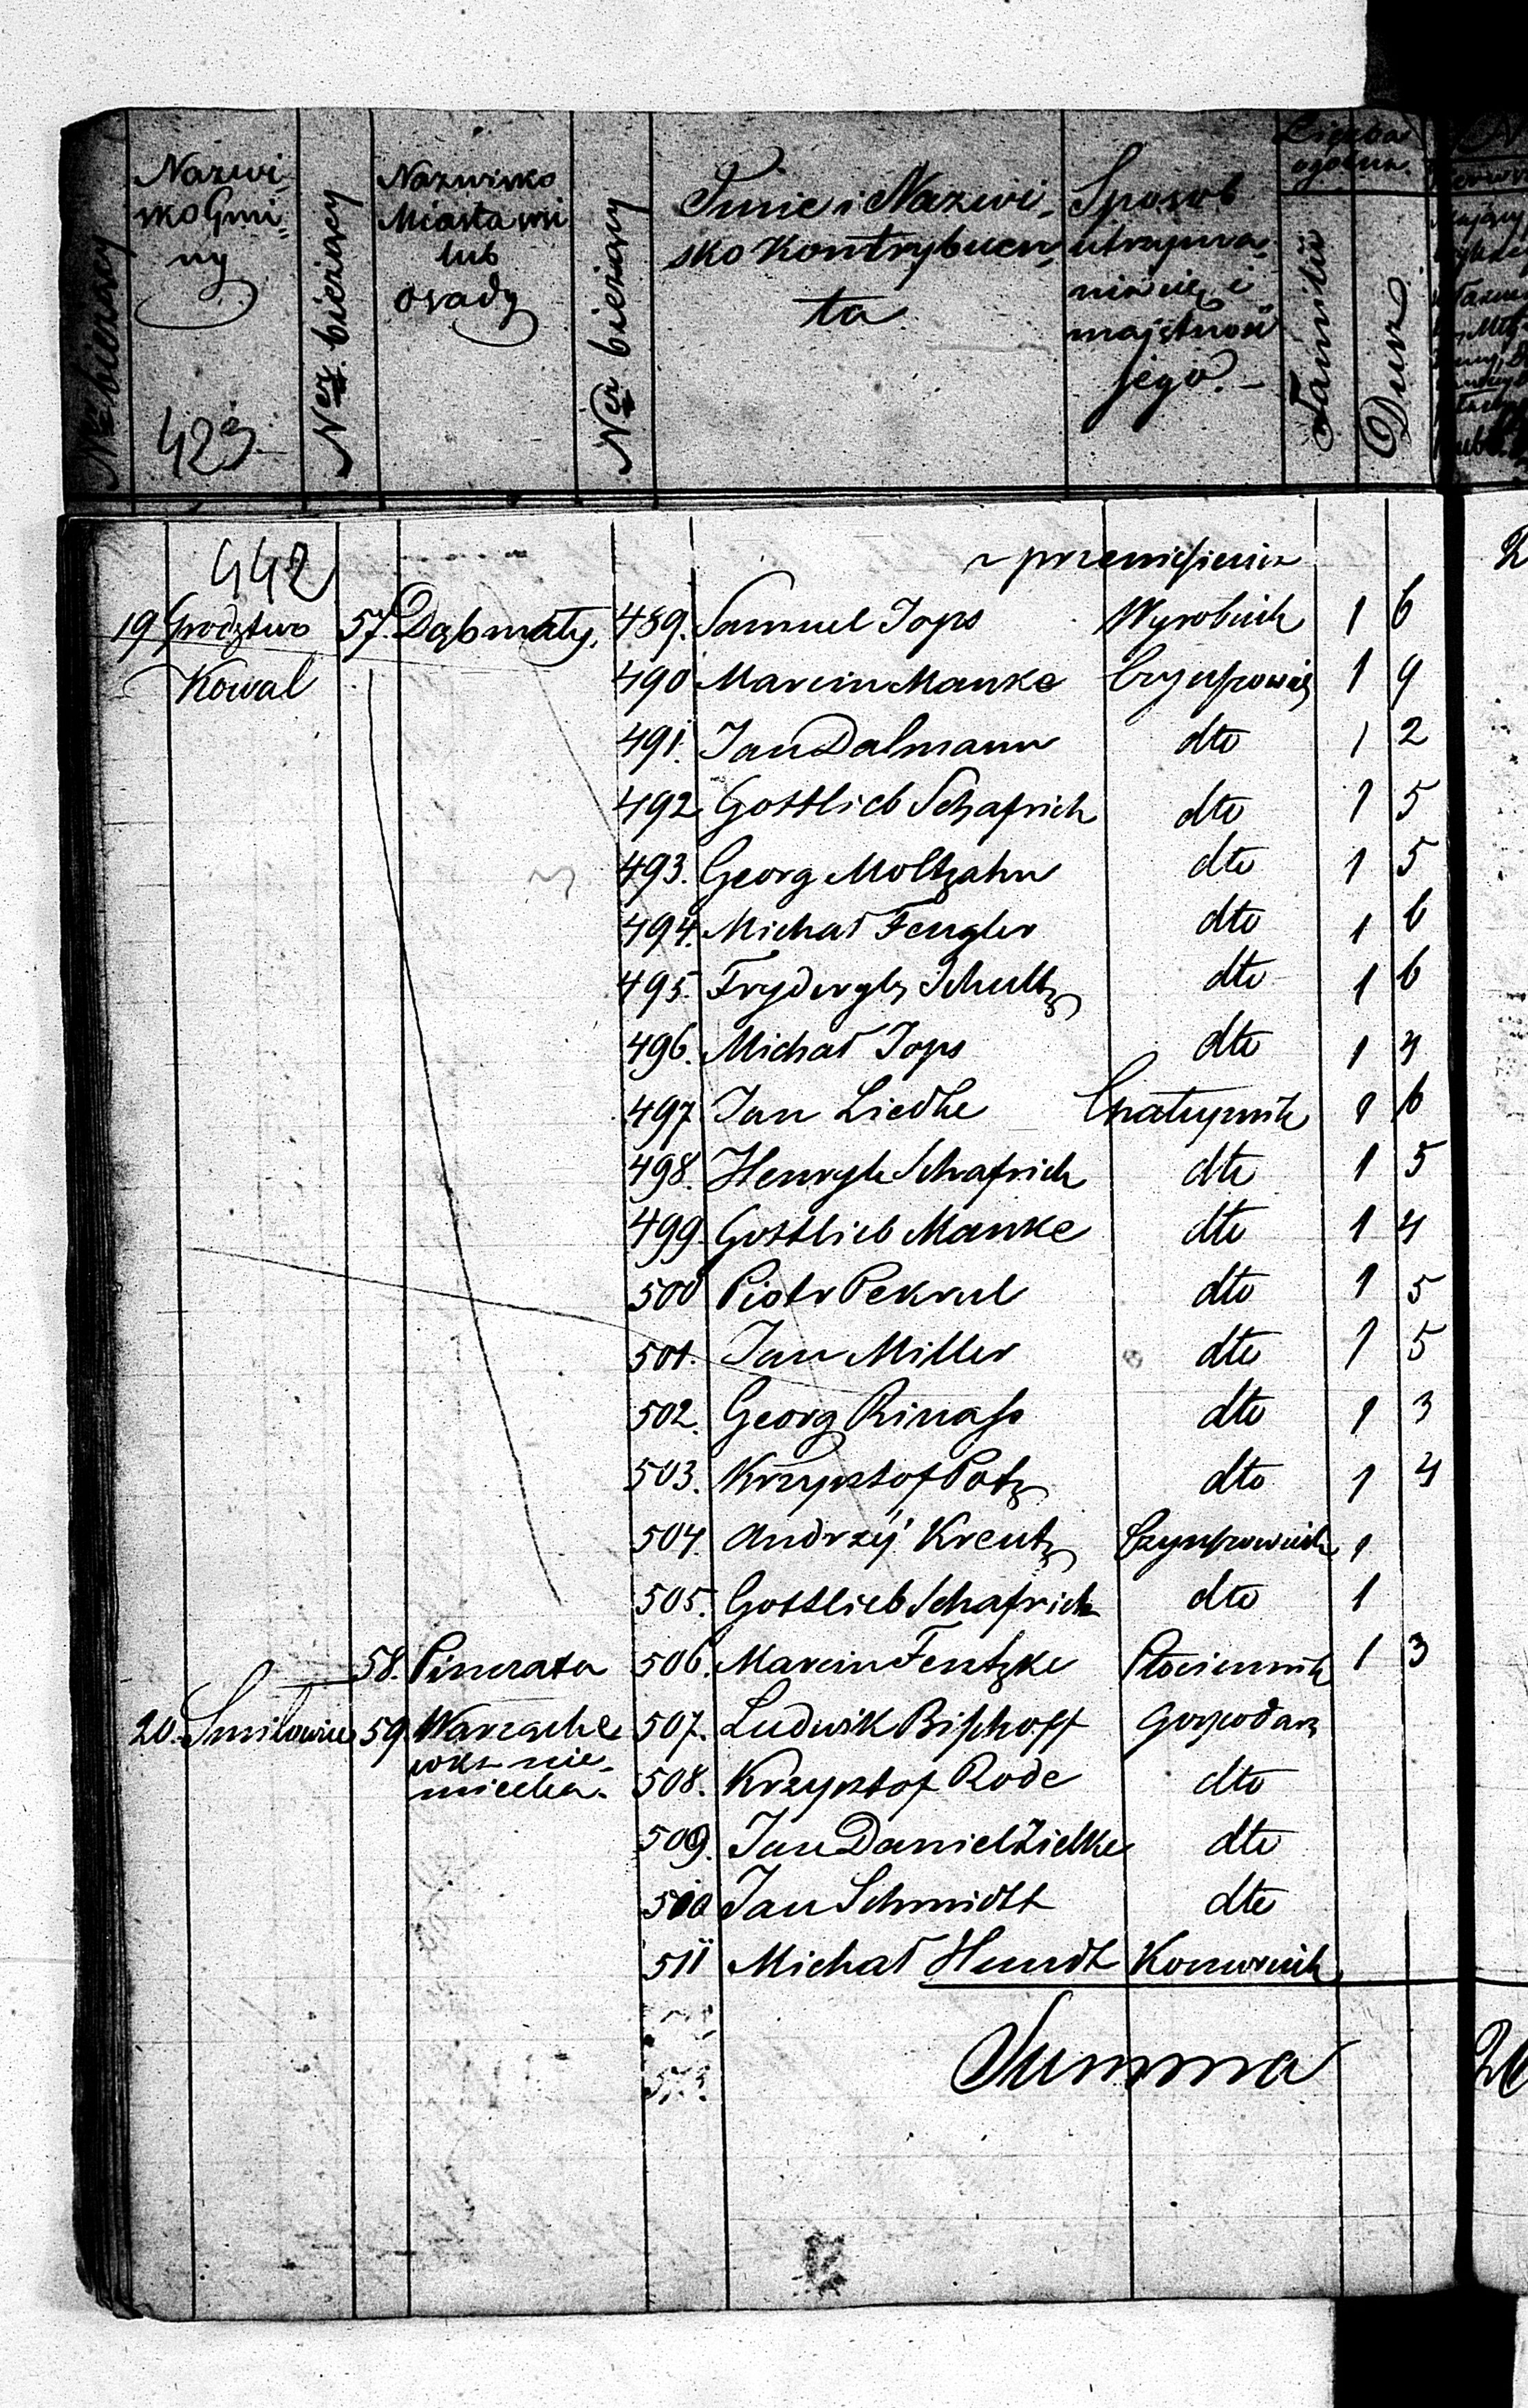 Ner bieżący
Nazwi-
sko Gmi-
ny
423
Ner bieżący
Nazwisko
Miasta wsi
lub
osady
Ner bieżący
Imie i Nazwi-
sko Kontrybuen-
ta
Sposob
utrzyma-
nia się i
majętność
jego.-
Liczba
ogolna.
Familii
Dusz
442
z przeniesienia
19 Grodztwo 57. Dąb mały. 489. Samuel Jops Wyrobnik 1 6
Kowal 490 Marcin Manke Czynszownik 1 9
491. Jan Dalmann dto 1 2
492 Gottlieb Schafrick dto 1 5
493. Georg Moltzahn dto 1 5
494. Michał Fengler dto 1 6
495. Fryderyk Schultz dto 1 6
496. Michał Jops dto 1 4
497 Jan Liedke Chałupnik 1 6
498. Henryk Schafrick dto 1 5
499. Gottlieb Manke dto 1 4
500 Piotr Pekrul dto 1 5
501. Jan Miller dto 1 5
502. Georg Rinass dto 1 3
503. Krzysztof Potz dto 1 4
504. Andrzy Kreutz Czynszownik 1
505. Gottlieb Schafrick dto 1
58. Pinczata 506. Marcin Fentzke Płóciennik 1 3
20. Smiłowice 59. Warząchewka nie- 507. Ludwik Bishoff Gospodarz
miecka. 508. Krzysztof Rode dto
509. Jan Daniel Zielke dto
510 Jan Schmidt dto
511 Michał Hundt Komornik
Summa